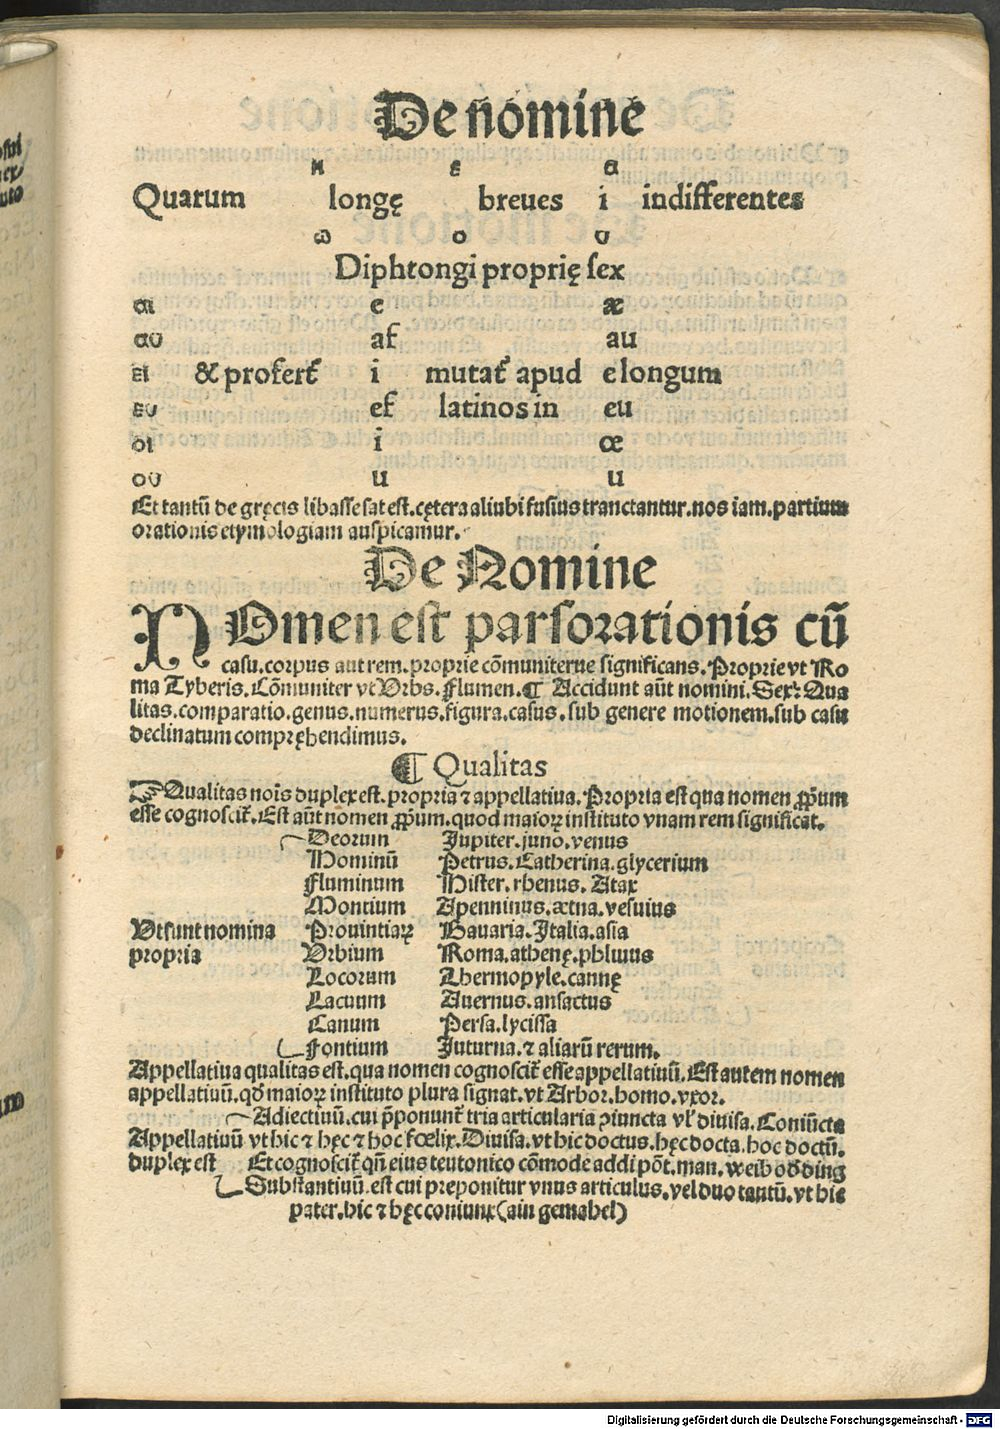 De nomine
η ε α
Quarum longę breues i indifferentes
ω ο υ
Diphtongi proprię sex
αι e æ
αυ af au
ει & profert᷑ i mutat᷑ apud e longum
ευ ef latinos in eu
οι i œ
ου u u
Et tantū de gręcis libasse sat est. cętera aliubi fusius tranctantur. nos iam. partium
orationis etymologiam auspicamur.
De Nomine
NOmen est pars orationis cū
casu. corpus aut rem. proprie cōmuniterue significans. Proprie vt Ro
ma Tyberis. Cōmuniter vt Vrbs. flumen. ¶ Accidunt aūt nomini. Sex: Qua
litas. comparatio. genus. numerus. figura. casus. sub genere motionem. sub casu
declinatum compręhendimus.
¶ Qualitas
☞ Qualitas noīs duplex est. propria ⁊ appellatiua. Propria est qua nomen ꝓprium
esse cognoscit᷑. Est aūt nomen ꝓprium. quod maioꝝ instituto vnam rem significat.
Deorum Jupiter. juno. venus
Hominū Petrus. Catherina. glycerium
Fluminum Hister. rhenus. Atax
Montium Apenninus. ætna. vesuius
Vt sunt nomina Prouintiaꝝ Bauaria. Italia. asia
propria Vrbium Roma. athenę.
Locorum Thermopyle. cannę
Lacuum Auernus. ansactus
Canum Persa. lycissa
Fontium Juturna. ⁊ aliarū rerum.
Appellatiua qualitas est. qua nomen cognoscit᷑ esse appellatiuū. Est autem nomen
appellatiuū. qđ maioꝝ instituto plura signat. vt Arbor. homo. vxor.
Adiectiuū. cui p̄ponunt᷑ tria articularia ꝯiuncta vl' diuisa. Coniūcta
Appellatiuū vt hic ⁊ hęc ⁊ hoc fœlix. Diuisa. vt hic doctus. hęc docta. hoc doctū.
duplex est Et cognoscit᷑ qn̄ eius teutonico cōmode addi pōt. man. weib oð ding
Substantiuū. est cui preponitur vnus articulus. vel duo tantū. vt hic
pater. hic ⁊ hęc coniunx (ain gemahel)
Digitalisierung gefördert durch die Deutsche Forschungsgemeinschaft - DFG